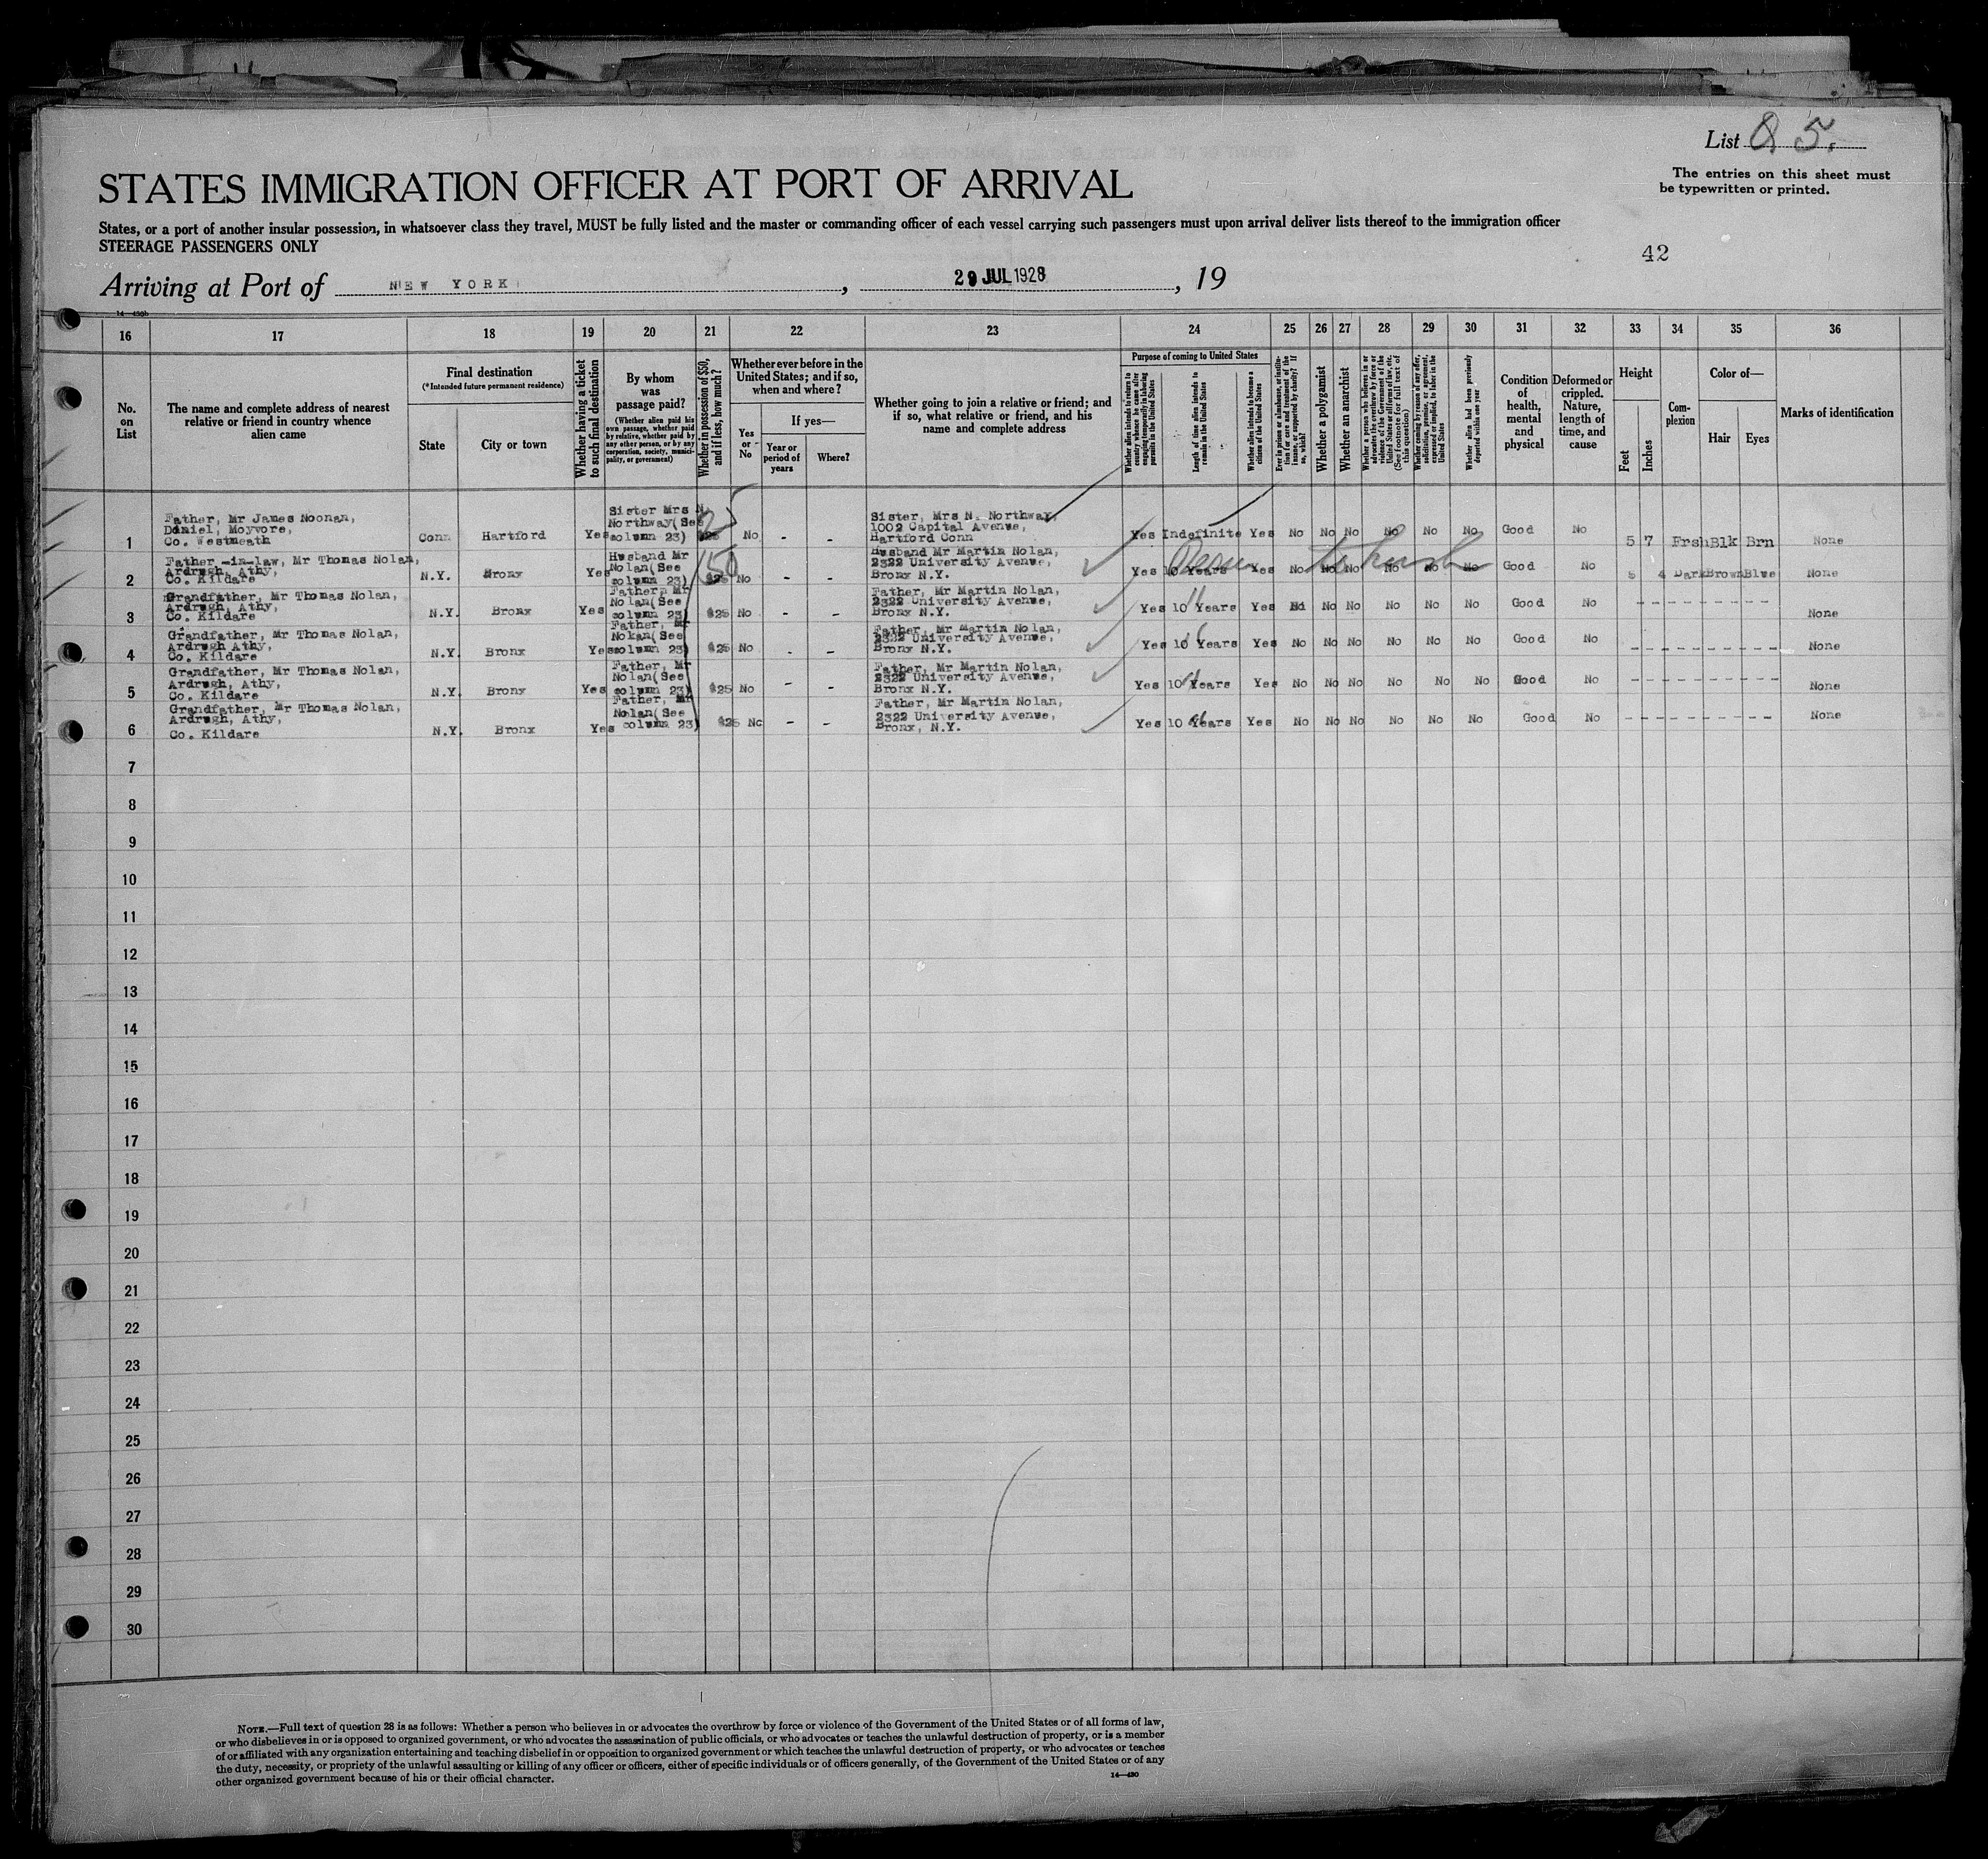 List 5.
The entries on this sheet must
be typewritten or printed.
STATES IMMIGRATION OFFICER AT PORT OF ARRIVAL
States, or a port of another insular possession, in whatsoever class they travel, MUST be fully listed and the master or commanding officer of each vessel carrying such passengers must upon arrival deliver lists thereof to the immigration officer
STEERAGE PASSENGERS ONLY
42
Arriving at Port of NEW YORK, 29 JUL 1928, 19
14—430b
16 17 18 19 20 21 22 23 24 25 26 27 28 29 30 31 32 33 34 35 36
No.
on
List
The name and complete address of nearest
relative or friend in country whence
alien came
Final destination
(*Intended future permanent residence)
State
City or town
Whether having a ticket
to such final destination
By whom
was
passage paid?
(Whether alien paid his
own passage, whether paid
by relative, whether paid by
any other person, or by any
corporation, society, munici-
pality, or government)
Whether in possession of $50,
and if less, how much?
Whether ever before in the
United States; and if so,
when and where?
Yes
or
No
If yes—
Year or
period of
years
Where?
Whether going to join a relative or friend; and
if so, what relative or friend, and his
name and complete address
Purpose of coming to United States
Whether alien intends to return to
country whence he came after
engaging temporarily in laboring
pursuits in the United States
Length of time alien intends to
remain in the United States
Whether alien intends to become a
citizen of the United States
Ever in prison or almshouse, or institu-
tion for care and treatment of the
insane, or supported by charity? If
so, which?
Whether a polygamist
Whether an anarchist
Whether a person who believes in or
advocates the overthrow by force or
violence of the Government of the
United States or all forms of law, etc.
(See footnote for full text of
this question)
Whether coming by reason of any offer,
solicitation, promise, or agreement,
expressed or implied, to labor in the
United States
Whether alien had been previously
deported within one year
Condition
of
health,
mental
and
physical
Deformed or
crippled.
Nature,
length of
time, and
cause
Height
Feet
Inches
Com-
plexion
Color of—
Hair
Eyes
Marks of identification
Father, Mr James Noonan,
Daniel, Moyvore,
Co. Westmeath
1 Conn Hartford Yes
Sister Mrs N.
Northway(See
column 23)
$25 No - -
Sister, Mrs N. Northway,
1002 Capital Avenue,
Hartford Conn
Yes Indefinite Yes No No No No No No Good No 5 7 Frsh Blk Brn None
Father-in-law, Mr Thomas Nolan,
Ardrugh, Athy,
Co. Kildare
2 N.Y. Bronx Yes
Husband Mr
Nolan(See
column 23)
50 $25 No - -
Husband Mr Martin Nolan,
2322 University Avenue,
Bronx N.Y.
Yes 10 Years Yes No No No No No No Good No 5 4 Dark Brown Blue None
Grandfather, Mr Thomas Nolan,
Ardrugh, Athy,
Co. Kildare
3 N.Y. Bronx Yes
Father, Mr
Nolan(See
column 23)
$25 No - -
Father, Mr Martin Nolan,
2322 University Avenue,
Bronx N.Y.
Yes 10 Years Yes No No No No No No Good No - - - - - - - - - None
Grandfather, Mr Thomas Nolan,
Ardrugh Athy,
Co. Kildare
4 N.Y. Bronx Yes
Father, Mr
Nokan(See
column 23)
$25 No - -
Father, Mr Martin Nolan,
2322 University Avenue,
Bronx N.Y.
Yes 10 Years Yes No No No No No No Good No - - - - - - - - - None
Grandfather, Mr Thomas Nolan,
Ardrugh, Athy,
Co. Kildare
5 N.Y. Bronx Yes
Father, Mr
Nolan(See
column 23)
$25 No - -
Father, Mr Martin Nolan,
2322 University Avenue,
Bronx N.Y.
Yes 10 Years Yes No No No No No No Good No - - - - - - - - - None
Grandfather, Mr Thomas Nolan,
Ardrugh, Athy,
Co. Kildare
6 N.Y. Bronx Yes
Father, Mr
Nolan(See
column 23)
$25 No - -
Father, Mr Martin Nolan,
2322 University Avenue,
Bronx, N.Y.
Yes 10 Years Yes No No No No No No Good No - - - - - - - - - None
7
8
9
10
11
12
13
14
15
16
17
18
19
20
21
22
23
24
25
26
27
28
29
30
NOTE.—Full text of question 28 is as follows: Whether a person who believes in or advocates the overthrow by force or violence of the Government of the United States or of all forms of law,
or who disbelieves in or is opposed to organized government, or who advocates the assassination of public officials, or who advocates or teaches the unlawful destruction of property, or is a member
of or affiliated with any organization entertaining and teaching disbelief in or opposition to organized government or which teaches the unlawful destruction of property, or who advocates or teaches
the duty, necessity, or propriety of the unlawful assaulting or killing of any officer or officers, either of specific individuals or of officers generally, of the Government of the United States or of any
other organized government because of his or their official character.
14—430